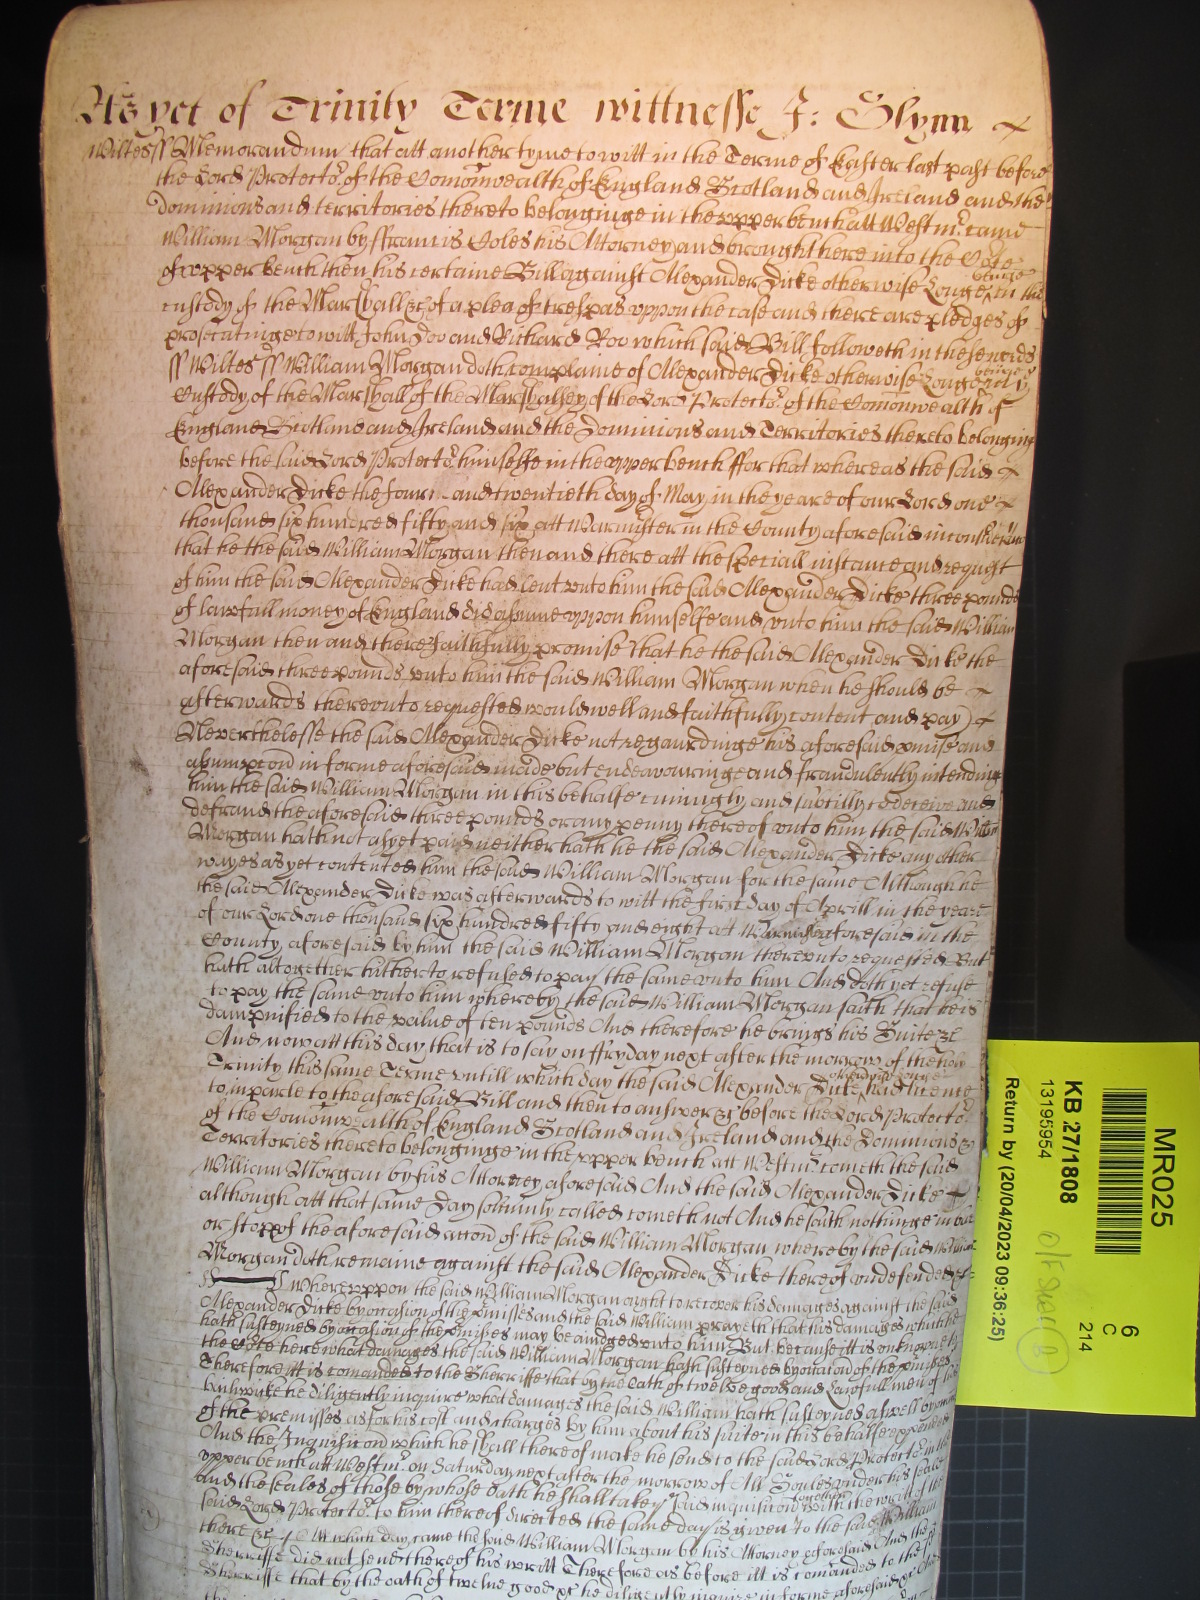 As yet of Trinity Terme wittnesse J: Glynn
Wiltes ss Memorandum that att another tyme to witt in the Terme of Easter last past before
the Lord Protector of the Comonwealth of England Scotland and Ireland and the
Dominions and territories thereto belonginge in the upper bench att Westmr: came
William Morgan by ffrancis Coles his Attorney and brought here into the Cote
of upper bench then his certaine Bill against Alexander Dicke otherwise George Longe in the
custody of the Marshall &c of a plea of trespas uppon the case and there are pledges of
prosecutinge to witt John Doo and Richard Roo which said Bill followeth in these words
ss Wiltes ss William Morgan doth complaine of Alexander Dicke otherwise George Longe
Custody of the Marshall of the Marshalsey of the Lord Protector of the Comonwealth of
England Scotland and Ireland and the Dominions and Territories thereto belonging
before the said Lord Protector himselfe in the upper bench ffor that whereas the said
Alexander Dicke the four and twentieth day of May in the yeare of our Lord one
thousand six hundred fifty and six att Warmister in the County aforesaid in
that he the said William Morgan then and there att the speciall instance and request
of him the said Alexander Dicke had lent unto him the said Alexander Dicke three pounds
of lawfull money of England did assume uppon himselfe and unto him the said William
Morgan then and there faithfully promise that he the said Alexander Dicke the
aforesaid three pounds unto him the said William Morgan when he should be
afterwards thereunto requested would well and faithfully content and pay
Neverthelesse the said Alexander Dicke not regaurdinge his aforesaid pmise and
assumpcon in forme aforesaid made but endeavouringe and fraudulently intending
him the said William Morgan in this behalfe cuningly and subtilly to deceive and
defraud the aforesaid three pounds or any penny thereof unto him the said William
Morgan hath not as yet paid neither hath he the said Alexander Dicke any other
wayes as yet contented him the said William Morgan for the same Although he
the said Alexander Dicke was afterwards to witt the first day of Aprill in the yeare
of our Lord one thousand six hundred fifty and eight att Warmister aforesaid in the
County aforesaid by him the said William Morgan thereunto requested But
hath altogether hitherto refused to pay the same unto him And doth yet refuse
to pay the same unto him whereby the said William Morgan saith that he is
dampnified to the value of ten pounds And therefore he brings his Suite &c
And now att this day that is to say on ffryday next after the morrow of the holy
Trinity this same Terme untill which day the said Alexander Dicke had licence
to inparle to the aforesaid Bill and then to answer &c before the Lord Protector
of the Comonwealth of England Scotland and Ireland and the Dominions &
Territories thereto belonginge in the upper bench att Westmr: cometh the said
William Morgan by his Attorney aforesaid And the said Alexander Dicke
although att that same day solemnly called cometh not And he saith nothinge in bar
or stopp of the aforesaid accon of the said William Morgan whereby the said William
Morgan doth remaine against the said Alexander Dicke thereof undefended
Whereuppon the said William Morgan ought to recover his damages against the said
Alexander Dicke by occasion of the pmisses and the said William prayeth that his damages which he
hath susteyned by occasion of the pmisses may be audged unto him But because itt is unknowne to
the Cote here what damages the said William Morgan hath susteyned by occasion of the pmisses
Therefore itt is comanded to the Sherriffe that by the oath of twelve good and Lawfull men of his
Bayliwicke he diligently inquire what damages the said William hath susteyned aswell by occasion
of the premisses as for his cost and charges by him about his suite in this behalfe expended
And the Inquisicon which he shall thereof make he send to the said Lord Protector in the
upper bench att Westmr: on Saturday next after the morrow of All Soules under his seale
and the seales of those by whose oath he shall take ye said inquisicon together with the writt of the
said Lord Protector to him thereof directed the same day is given to the said William
there &c Att which day came the said William Morgan by his Attorney aforesaid And the
Sherriffe did not send thereof his writt Therefore as before itt is comanded to the
Sherriffe that by the oath of twelve good &c he diligently inquire in forme aforesaid
MR025
6
C
214
KB 27/1808
13195954
Return by (20/04/2023 09:36:25)